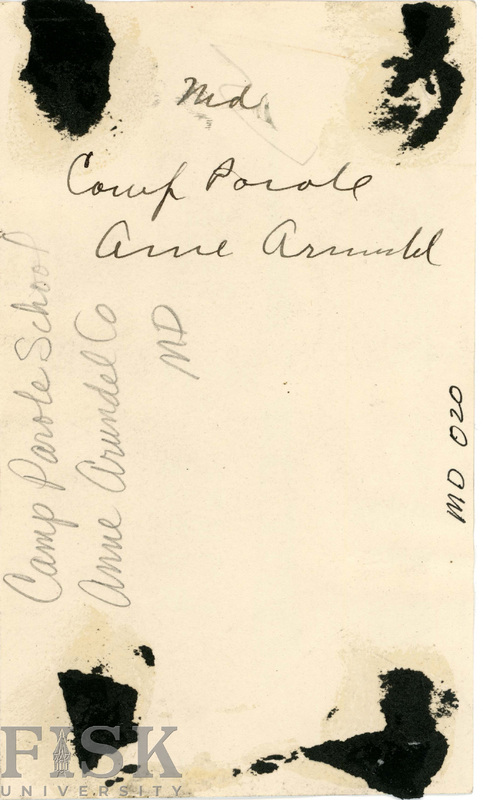 Md
Camp Parole
Anne Arundel
Camp Parole School
Anne Arundel Co
MD
MD 020
FISK
UNIVERSITY